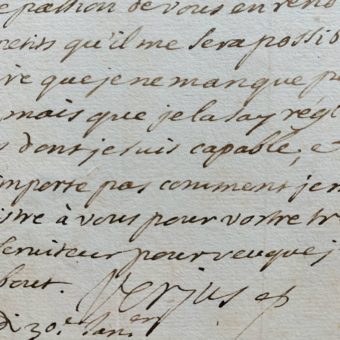 passion de vous en ren
petits qu'il me sera possi
re que je ne manque p
mais que je la say regl
dont je suis capable, e
importe pas comment je n
istre à vous pour vostre tr
seruiteur pourveu que j
bout.
di 30.e Jan.